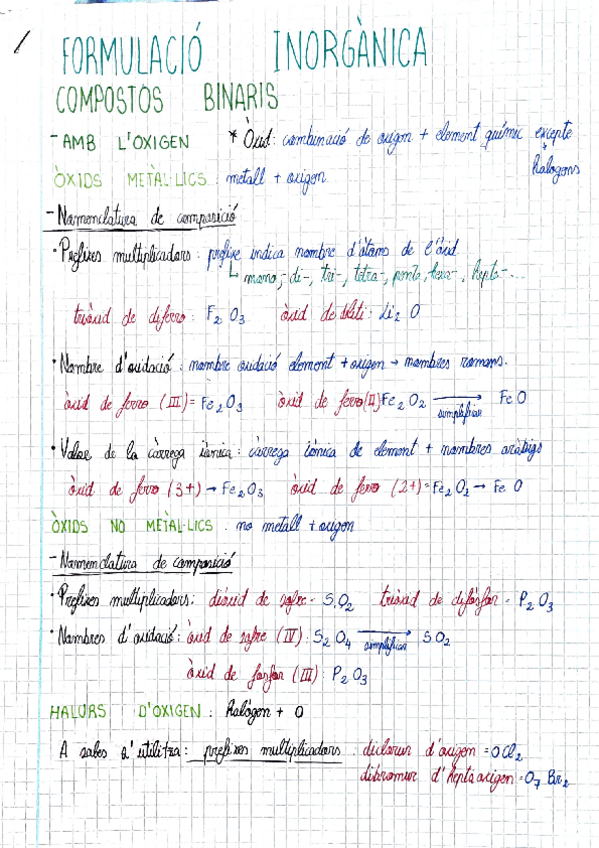 FORMULACIÓ INORGÀNICA
COMPOSTOS BINARIS
- AMB L'OXIGEN * Òxid: combinació de oxigen + element químic excepte
halògens
ÒXIDS METÀL·LICS: metall + oxigen
- Nomenclatura de composició
· Prefixes multiplicadors: prefixe indica nombre d'àtoms de l'òxid.
mono-, di-, tri-, tetra-, penta, hexa-, hepta-...
triòxid de diferro: F2 O3 òxid de diliti: Li2 O
· Nombre d'oxidació: nombre oxidació element + oxigen → nombres romans.
òxid de ferro (III) = Fe2 O3 òxid de ferro (II) Fe2 O2 → Fe O
simplificar
· Valor de la càrrega iònica: càrrega iònica de element + nombres aràbigs
òxid de ferro (3+) → Fe2 O3 òxid de ferro (2+) = Fe2 O2 → Fe O
ÒXIDS NO METÀL·LICS: no metall + oxigen
- Nomenclatura de composició
· Prefixes multiplicadors: diòxid de sofre = S O2 triòxid de difòsfor = P2 O3
· Nombres d'oxidació: òxid de sofre (IV): S2 O4 → S O2
simplificar
òxid de fosfor (III): P2 O3
HALURS D'OXIGEN: halògen + O
A soles s'utilitza: prefixes multiplicadors: diclorur d'oxigen = O Cl2
dibromur d'heptaoxigen = O7 Br2